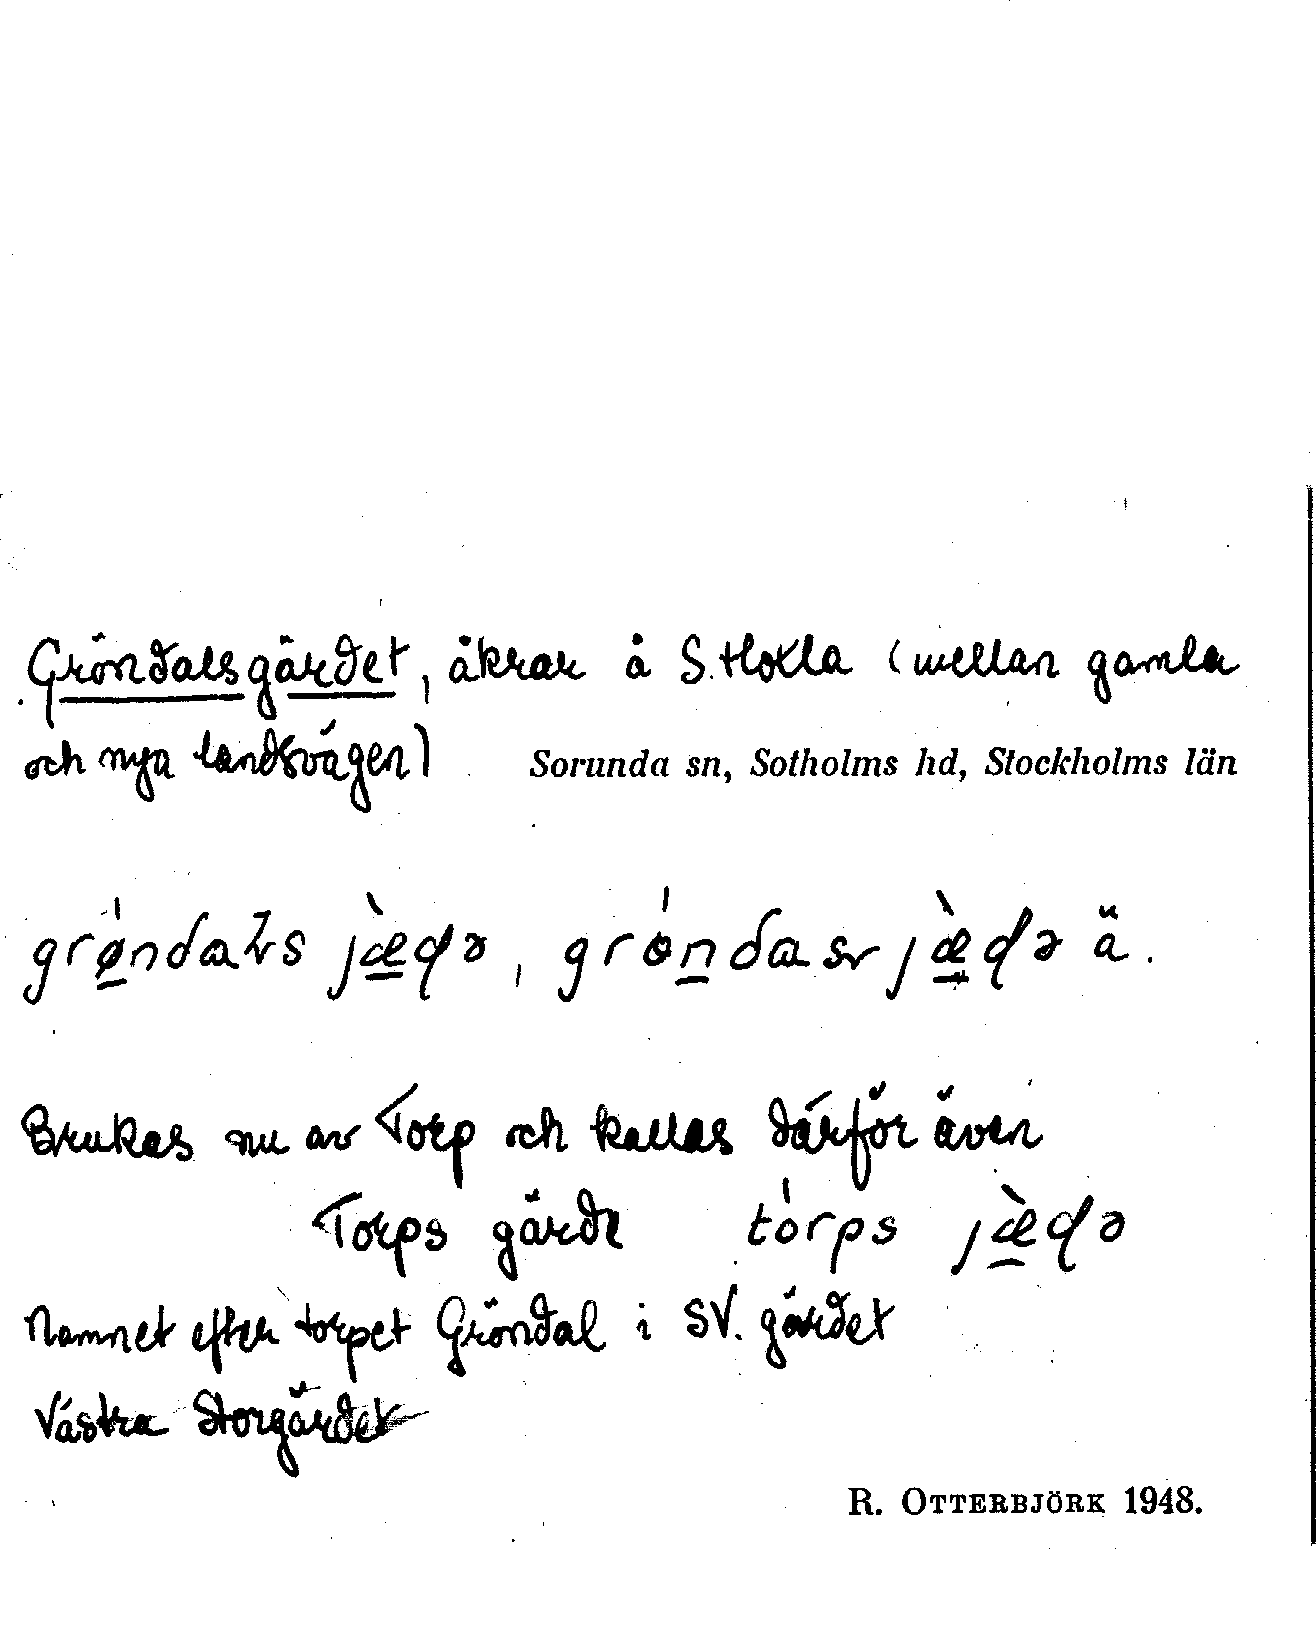 Gröndalsgärdet, åkrar å S. Stokla (mellan gamla
och nya landsvägen) Sorunda sn, Sotholms hd, Stockholms län
jæ̀ḍə, jæ̀ḍə ä.
Brukas nu av Torp och kallas därför även
Torps gärde tórps jæ̀ḍə
Namnet efter torpet Gröndal i SV. gärdet
Västra Storgärdet
R. OTTERBJÖRK 1948.